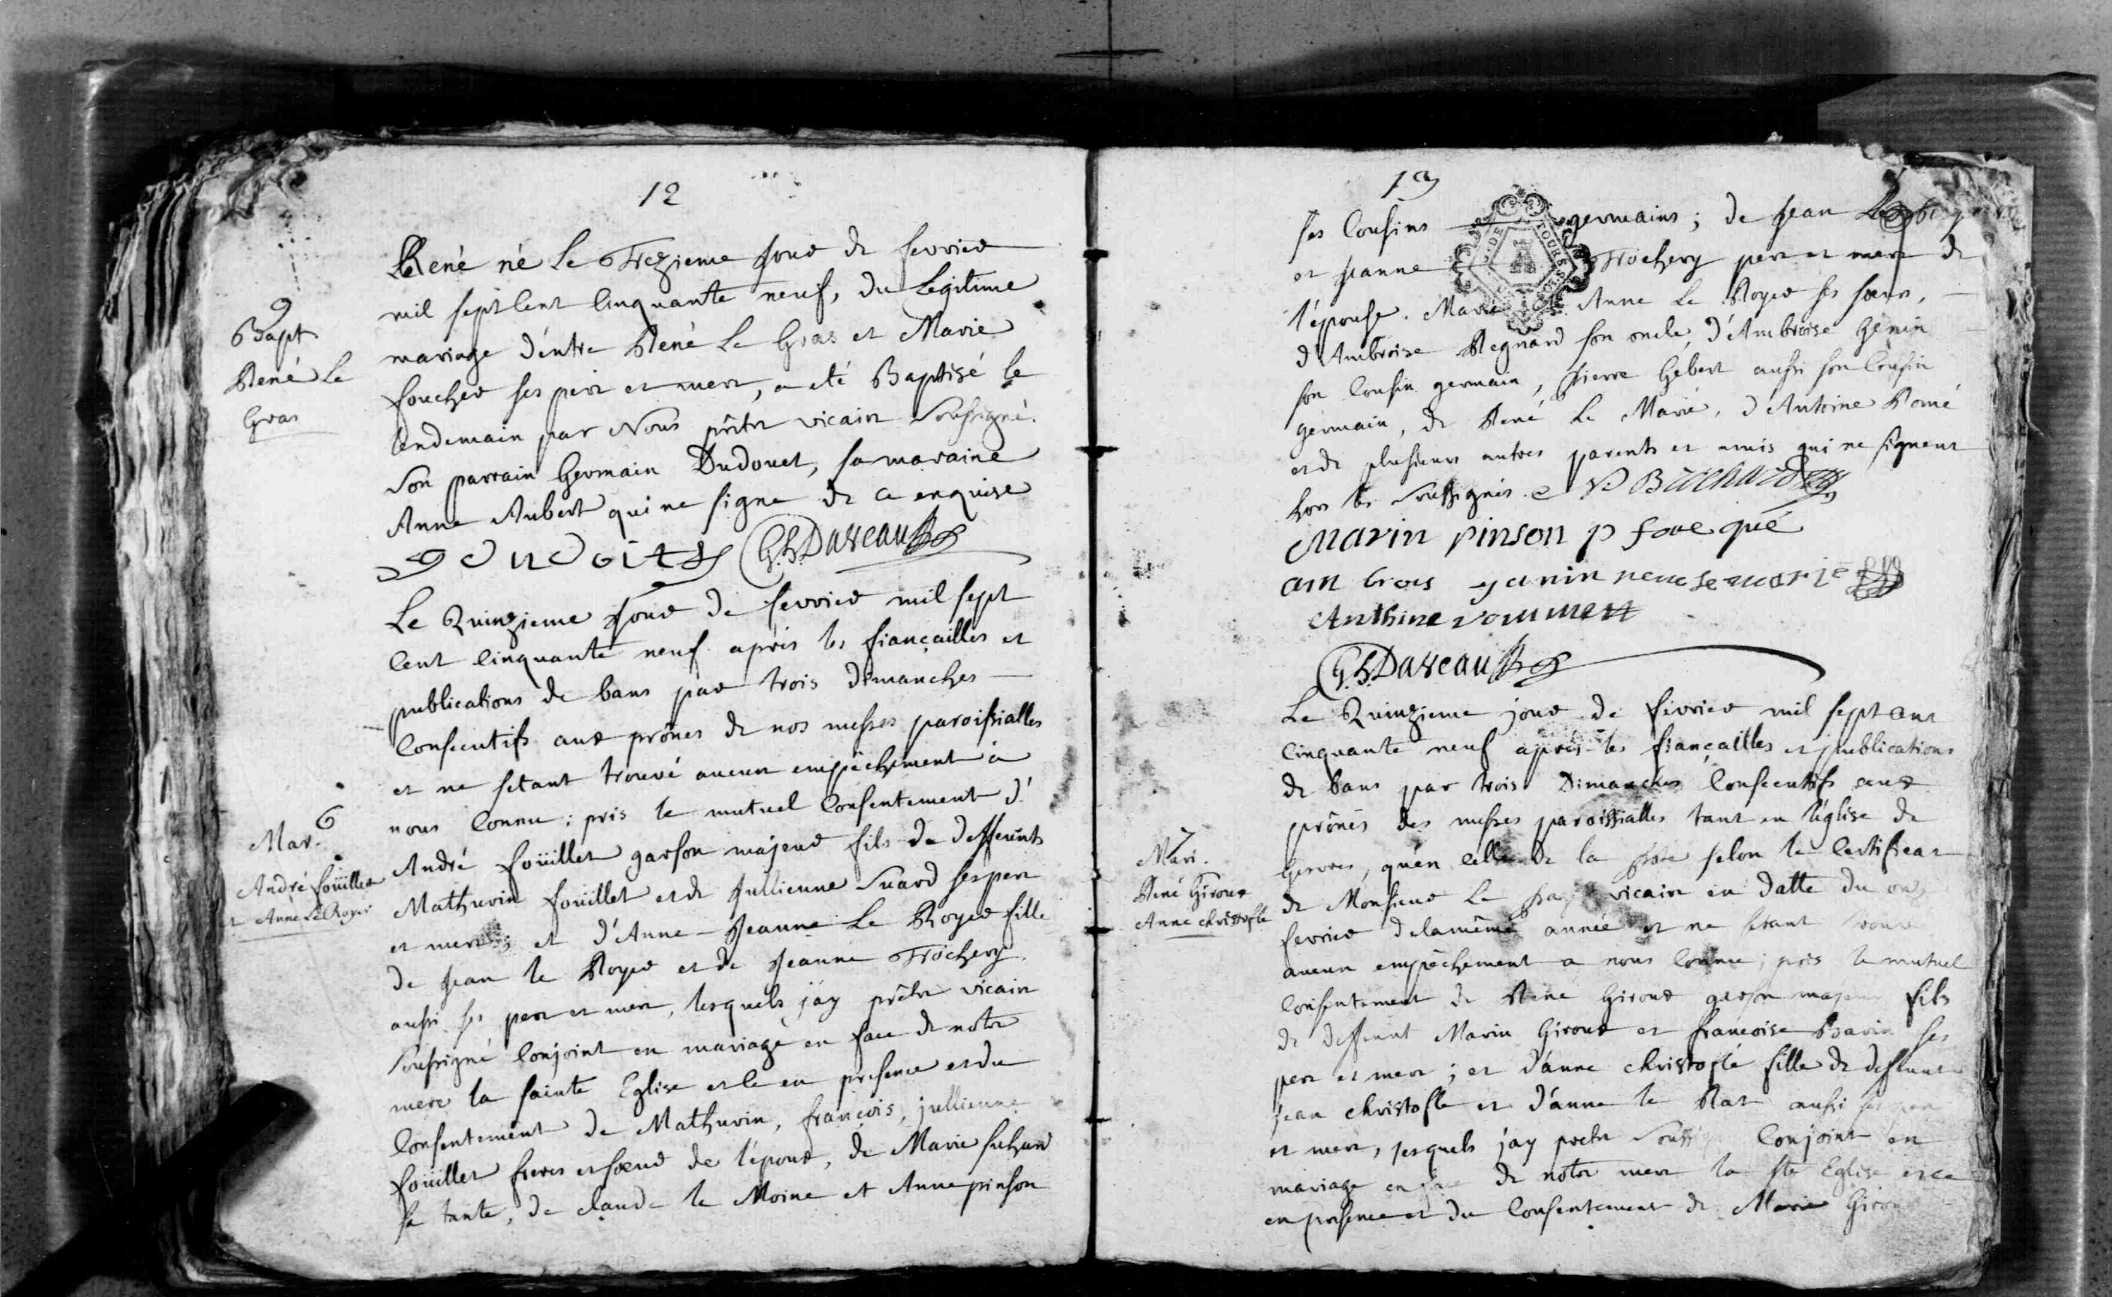 12
9
Bapt
René Le
Gras
René né Le Trezieme jour de fevrier
mil sept Cent Cinquante neuf, du Legitime
mariage d'entre René Le Gras et Marie
foucher ses pere et mere, a eté Baptisé le
lendemain par Nous prêtre vicaire Soussigné.
Son parrain Germain Dudouet, sa maraine
Anne Aubert qui ne signe de ce enquise
G.S. Daveau
6
Mar.
André foüillet
et Anne Le Royer
Le Quinzieme Jour de fevrier mil sept
Cent Cinquante neuf après les fiançailles et
publications de bans par trois dimanches
Consecutifs aux prônes de nos messes paroissialles
et ne s'etant trouvé aucun empêchement à
nous Connu ; pris le mutuel Consentement d'
André foüillet garson majeur fils de deffunts
Mathurin foüillet et de Jullienne Suard ses pere
et mere ; et d'Anne-Jeanne Le Royer fille
de Jean le Royer et de Jeanne Trochery
aussi ses pere et mere, lesquels j'ay prêtre vicaire
Soussigné Conjoint en mariage en face de notre
mere la sainte Eglise et ce en presence et du
Consentement de Mathurin, françois, jullienne
foüillet freres et soeur de l'epoux, de Marie
sa tante, de claude le Moine et Anne pinson
13
ses Cousins germains ; de Jean
et Jeanne Trochery pere et mere de
l'épouse. Marie Anne Le Royer ses soeurs,
d'Ambroise Regnard son oncle, d'Ambroise Genin
son Cousin germain, pierre Hebert aussi son Cousin
germain, de René Le Marié, d'Antoine Pomé
et de plusieurs autres parents et amis qui ne signent
hors les Soussignés
Marin pinson
Anthoine
G.S. Daveau
7
Mari.
René Giroux
Anne christofle
Le Quinzieme jour de fevrier mil sept Cent
Cinquante neuf après les fiançailles et publications
de bans par trois Dimanches Consecutifs aux
prônes des messes paroissialles tant en l'église de
Gesvres, qu'en celle de la selon le Certificat
de Monsieur Le vicaire en datte du
fevrier de la même année et ne s'etant trouvé
aucun empêchement a nous Connu ; pris le mutuel
Consentement de René Giroux garson majeur fils
de deffunt Marin Giroux et francoise ses
pere et mere ; et d'anne christofle fille de deffunt
Jean christofle et d'anne le Rat aussi ses pere
et mere, lesquels j'ay prêtre Conjoint en
mariage en de notre mere la ste Eglise et ce
en presence et du Consentement de Marie Giroux